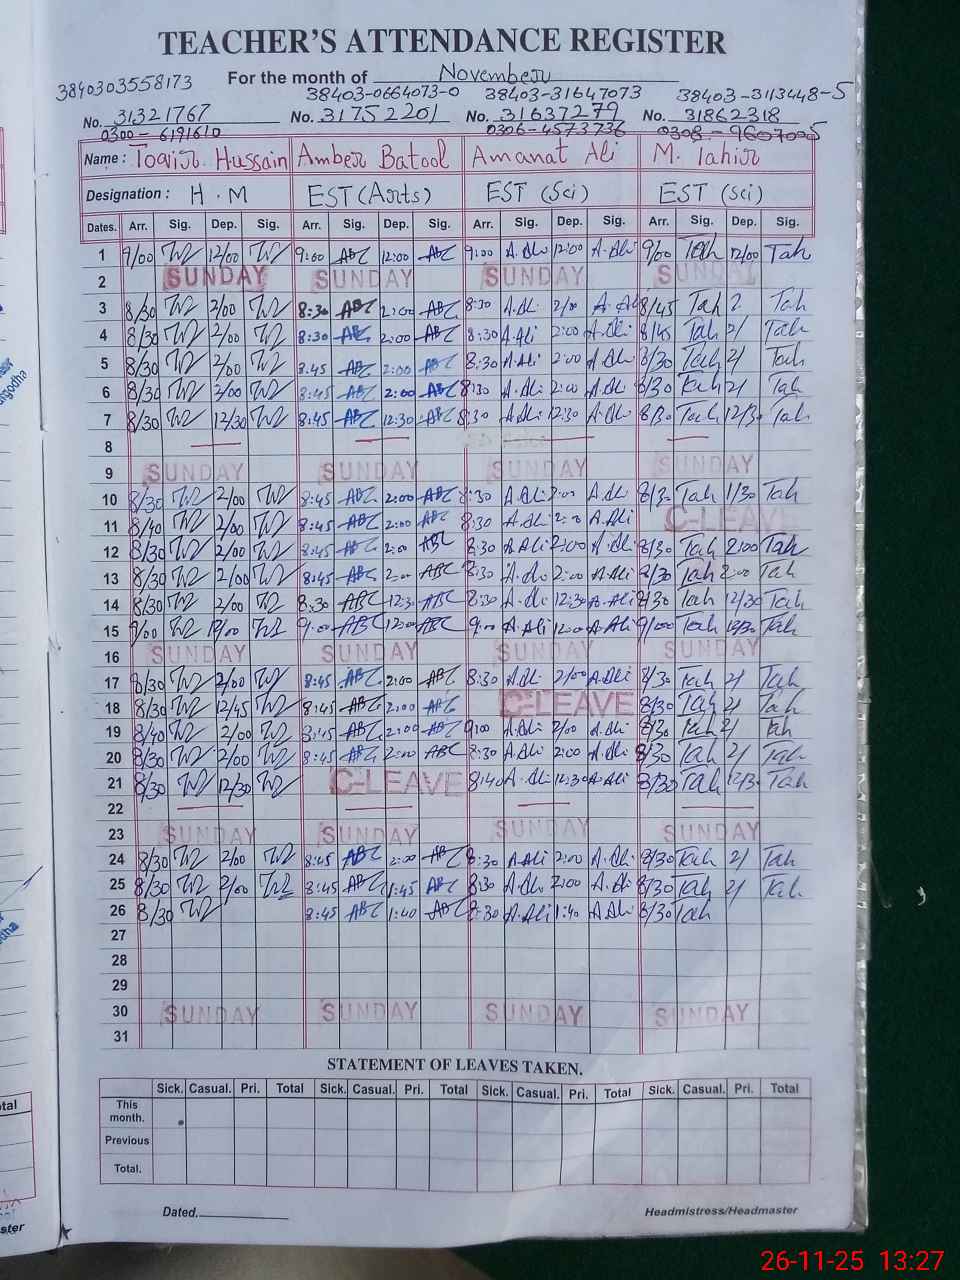 TEACHER'S ATTENDANCE REGISTER
For the month of November
3840303558173 38403-0664073-0 38403-31647073 38403-3113448-5
No. 31321767 No. 31752201 No. 31637279 No. 31862318
0300-6191610 0306-4573736 0308-9607005
Name : Hussain Amber Batool Amanat Ali M. Tahir
Designation : H.M EST (Arts) EST (Sci) EST (Sci)
Dates. Arr. Sig. Dep. Sig. Arr. Sig. Dep. Sig. Arr. Sig. Dep. Sig. Arr. Sig. Dep. Sig.
1 9/00 12/00 9:00 ABC 12:00 ABC 9:00 A.Ali 12:00 A.Ali 9/00 Tah 12/00 Tah
2 SUNDAY SUNDAY SUNDAY SUNDAY
3 8/30 2/00 8:30 ABC 2:00 ABC 8:30 A.Ali 2/00 A.Ali 8/45 Tah 2 Tah
4 8/30 2/00 8:30 ABC 2:00 ABC 8:30 A.Ali 2:00 A.Ali 8/45 Tah 2/ Tah
5 8/30 2/00 8:45 ABC 2:00 ABC 8:30 A.Ali 2:00 A.Ali 8/30 Tah 2/ Tah
6 8/30 2/00 8:45 ABC 2:00 ABC 8:30 A.Ali 2:00 A.Ali 8/30 Tah 2/ Tah
7 8/30 12/30 8:45 ABC 12:30 ABC 8:30 A.Ali 12:30 A.Ali 8/30 Tah 12/30 Tah
8
9 SUNDAY SUNDAY SUNDAY SUNDAY
10 8/30 2/00 8:45 ABC 2:00 ABC 8:30 A.Ali 2:00 A.Ali 8/30 Tah 1/30 Tah
11 8/40 2/00 8:45 ABC 2:00 ABC 8:30 A.Ali 2:00 A.Ali C-LEAVE
12 8/30 2/00 8:45 ABC 2:00 ABC 8:30 A.Ali 2:00 A.Ali 8/30 Tah 2:00 Tah
13 8/30 2/00 8:45 ABC 2:00 ABC 8:30 A.Ali 2:00 A.Ali 8/30 Tah 2:00 Tah
14 8/30 2/00 8:30 ABC 12:30 ABC 8:30 A.Ali 12:30 A.Ali 8/30 Tah 12/30 Tah
15 9/00 12/00 9:00 ABC 12:00 ABC 9:00 A.Ali 12:00 A.Ali 9/00 Tah 12/30 Tah
16 SUNDAY SUNDAY SUNDAY SUNDAY
17 8/30 2/00 8:45 ABC 2:00 ABC 8:30 A.Ali 2/00 A.Ali 8/30 Tah 2/ Tah
18 8/30 12/45 8:45 ABC 2:00 ABC C-LEAVE 8/30 Tah 2/ Tah
19 8/40 2/00 8:45 ABC 2:00 ABC 9:00 A.Ali 2/00 A.Ali 8/30 Tah 2/ Tah
20 8/30 2/00 8:45 ABC 2:00 ABC 8:30 A.Ali 2:00 A.Ali 8/30 Tah 2/ Tah
21 8/30 12/30 C-LEAVE 8:40 A.Ali 12:30 A.Ali 8/30 Tah 12/30 Tah
22
23 SUNDAY SUNDAY SUNDAY SUNDAY
24 8/30 2/00 8:45 ABC 2:00 ABC 8:30 A.Ali 2:00 A.Ali 8/30 Tah 2/ Tah
25 8/30 2/00 8:45 ABC 1:45 ABC 8:30 A.Ali 2:00 A.Ali 8/30 Tah 2/ Tah
26 8/30 8:45 ABC 1:40 ABC 8:30 A.Ali 1:40 A.Ali 8/30 Tah
27
28
29
30 SUNDAY SUNDAY SUNDAY SUNDAY
31
STATEMENT OF LEAVES TAKEN.
Sick. Casual. Pri. Total Sick. Casual. Pri. Total Sick. Casual. Pri. Total Sick. Casual. Pri. Total
This month.
Previous
Total.
Dated. Headmistress/Headmaster
26-11-25 13:27